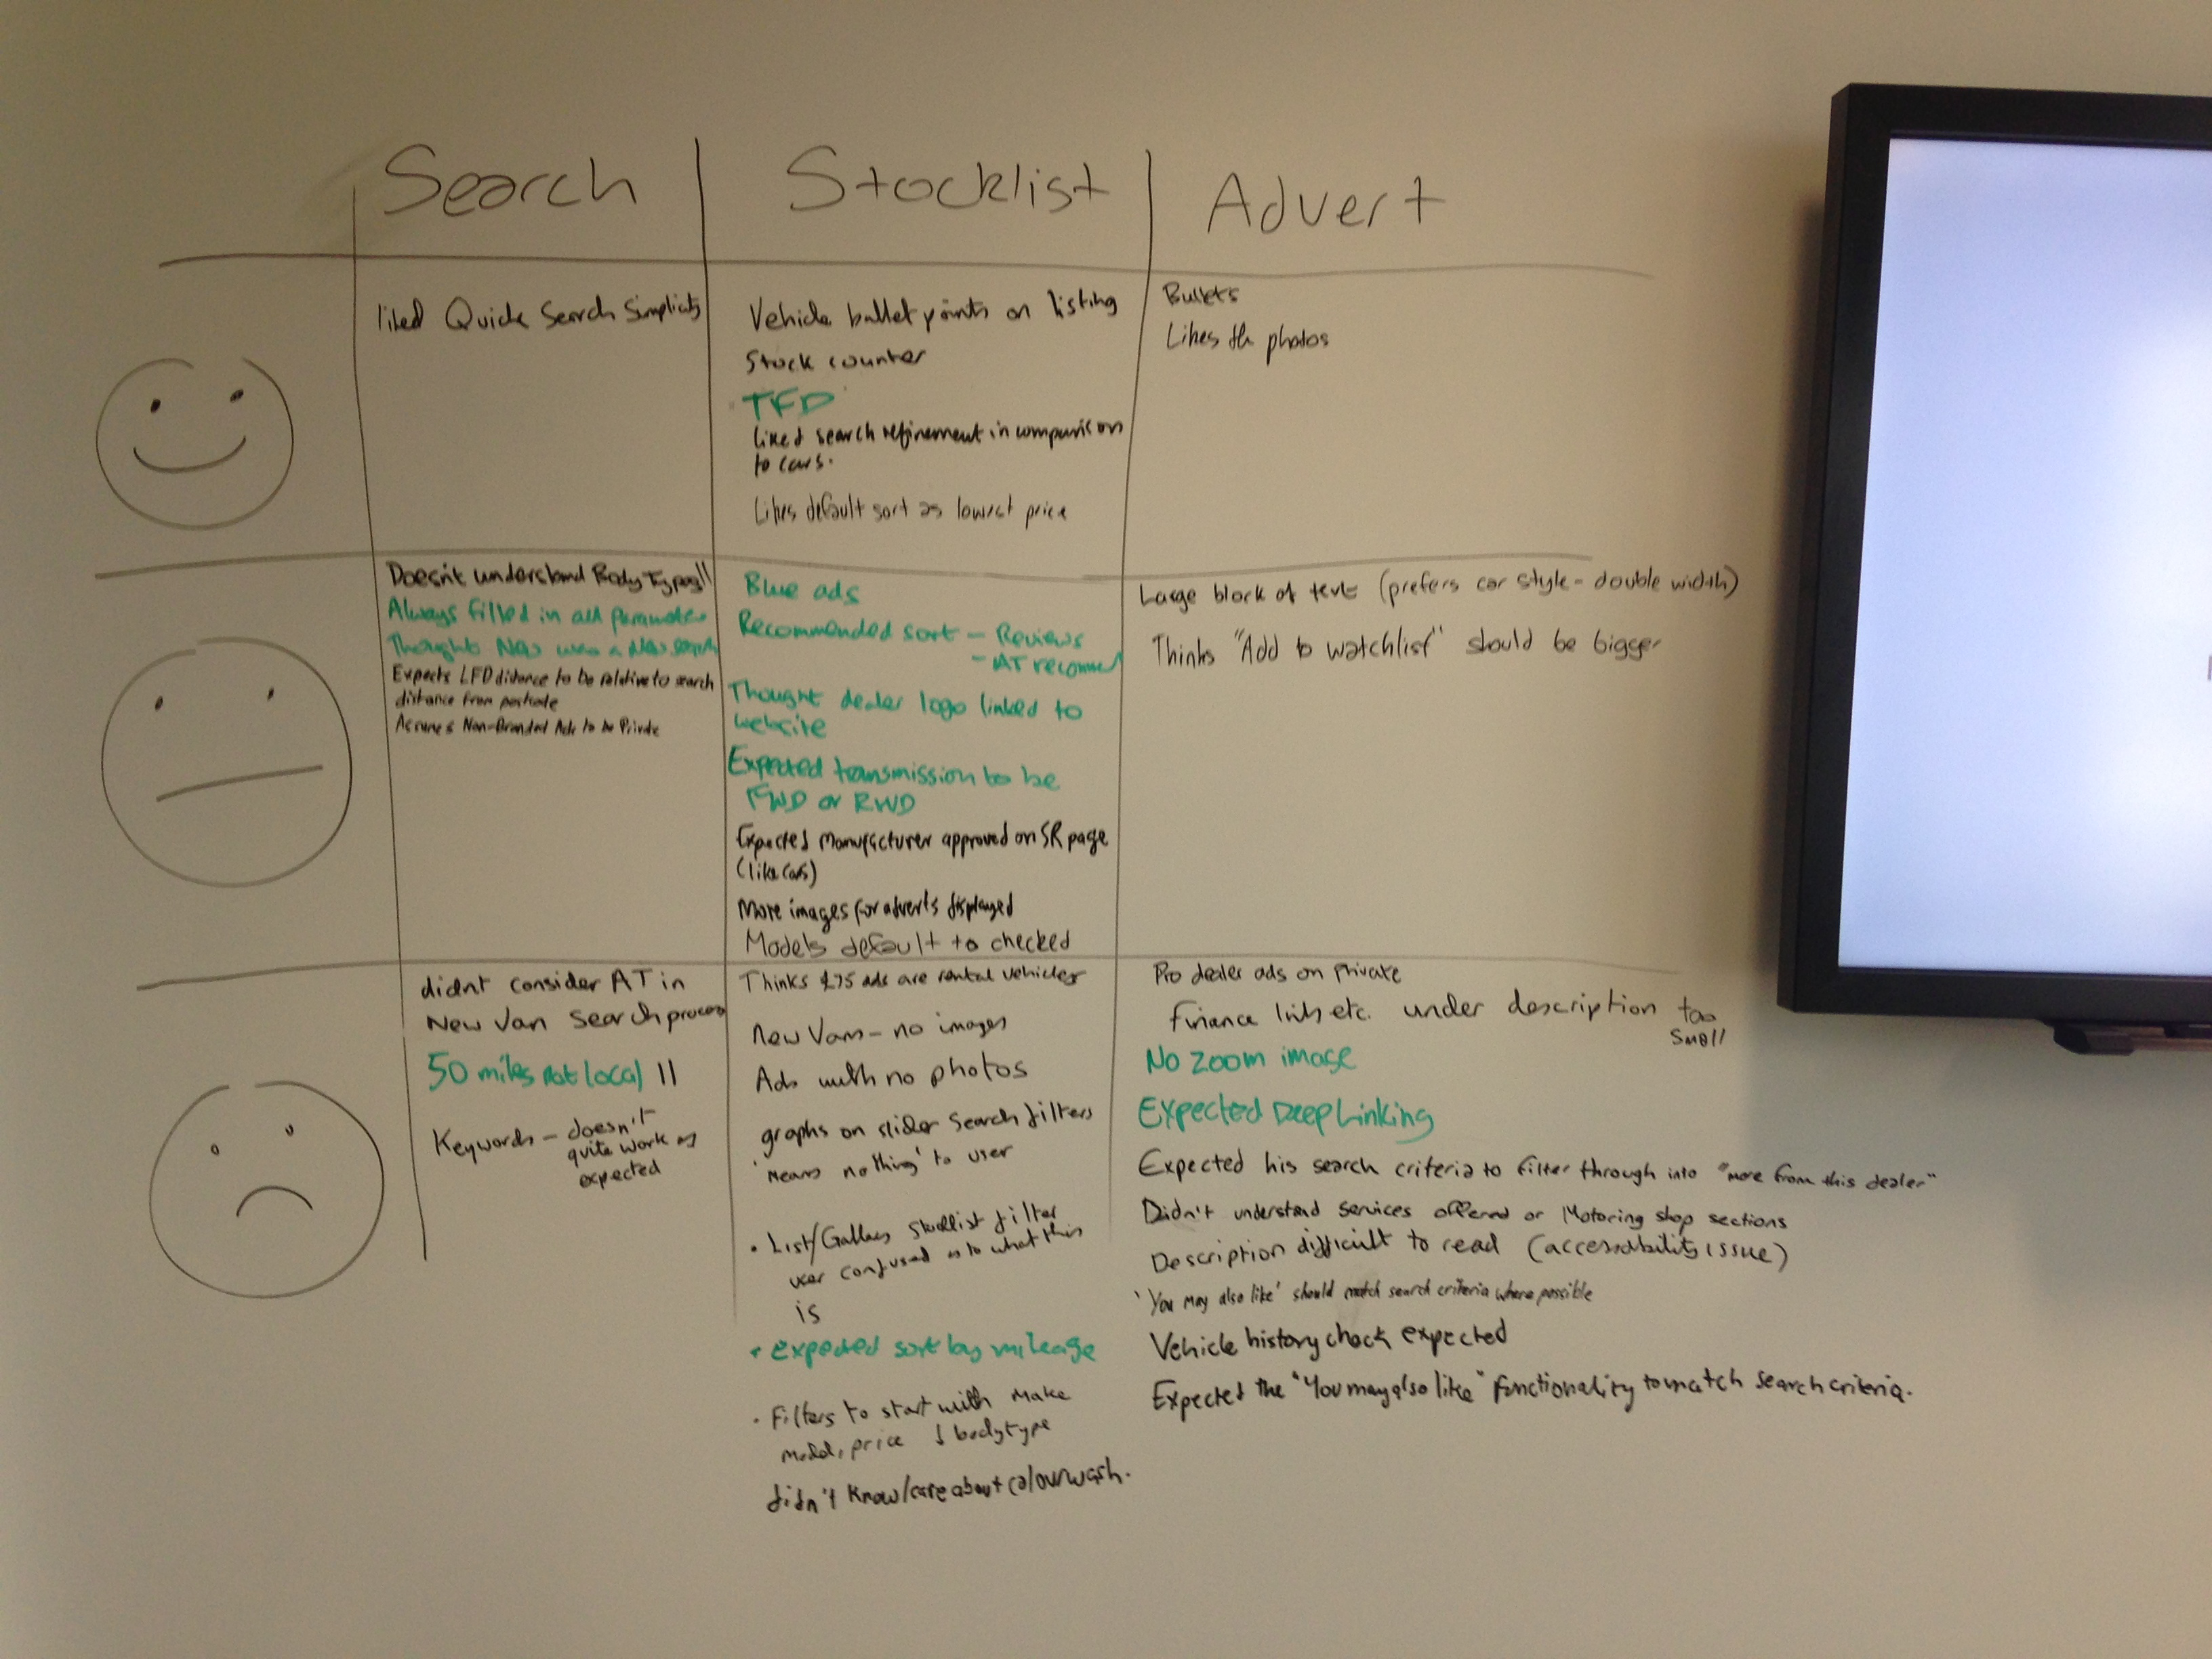 Search
Stocklist
Advert
liked Quick Search Simplicity
Vehicle bullet points on listing
Stock counter
TFD
liked search refinement in comparison
to cars.
Likes default sort as lowest price
Bullets
Likes the photos
Doesn't understand Body Types II
Always filled in all parameters
Thought New was a New search
Expects LFD distance to be relative to search
distance from postcode
Assumes Non-Branded Ads to be Private
Blue ads
Recommended sort - Reviews
- AT recommend
Thought dealer logo linked to
website
Expected transmission to be
FWD or RWD
Expected Manufacturer approved on SR page
(like cars)
More images for adverts displayed
Models default to checked
Large block of text (prefers car style - double width)
Thinks "Add to watchlist" should be bigger
didnt consider AT in
New Van Search process
50 miles not local II
Keywords - doesn't
quite work as
expected
Thinks £75 ads are rental vehicles
New Vans - no images
Ads with no photos
graphs on slider search filters
'means nothing' to user
• List/Gallery Stocklist filter
user confused as to what this
is
• expected sort by mileage
• Filters to start with make
model, price & bodytype
didn't know/care about colourwash.
Pro dealer ads on Private
Finance links etc. under description too
small
No zoom image
Expected Deep Linking
Expected his search criteria to filter through into "more from this dealer"
Didn't understand services offered or Motoring shop sections
Description difficult to read (accessability issue)
'You may also like' should match search criteria where possible
Vehicle history check expected
Expected the "You may also like" functionality to match search criteria.